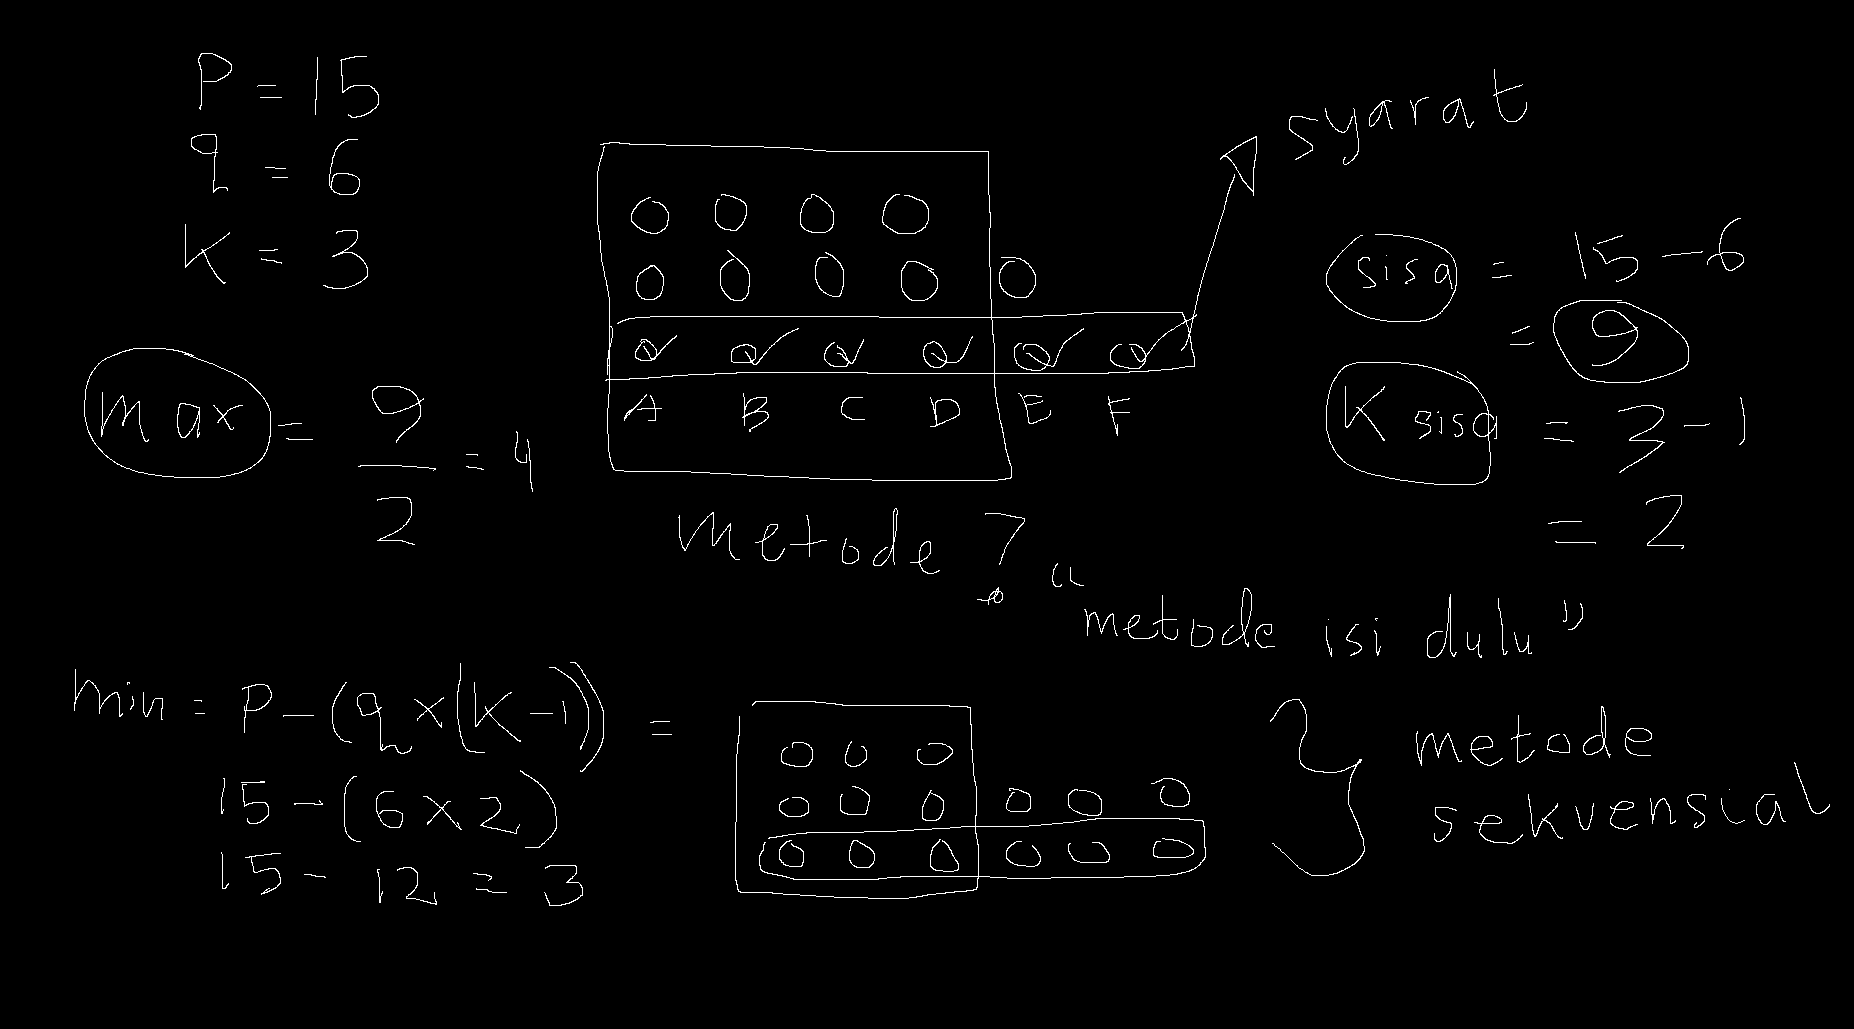 P = 15
q = 6
K = 3
max = 9/2 = 4
A B C D E F
syarat
sisa = 15 - 6
= 9
K sisa = 3 - 1
= 2
metode ?
"metode isi dulu"
min = P - (q x (K - 1)) =
15 - (6 x 2)
15 - 12 = 3
metode
sekvensial